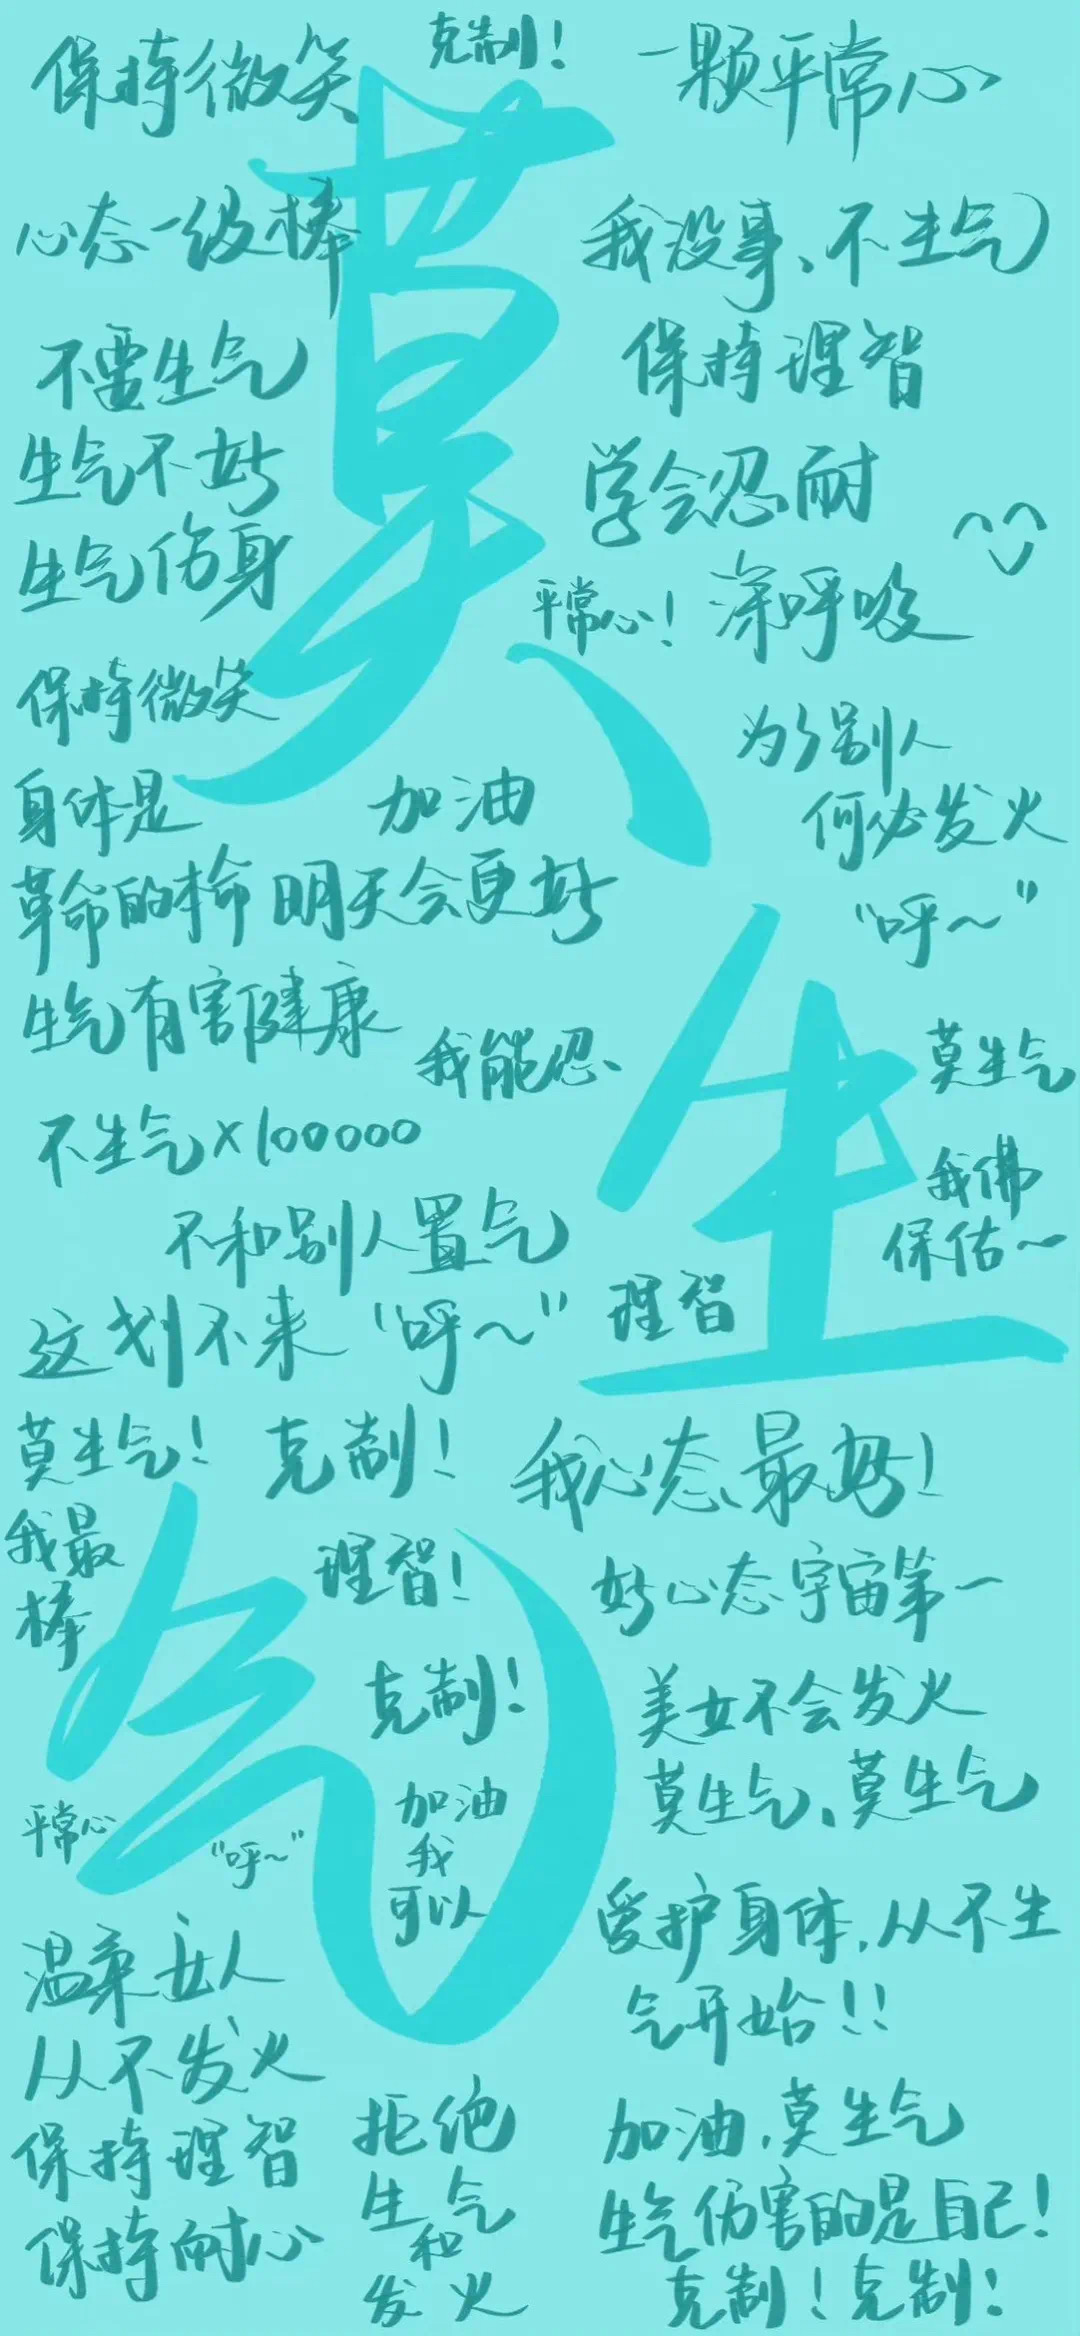 保持微笑
克制！
一颗平常心
心态一级棒
我没事、不生气
不要生气
保持理智
生气不好
学会忍耐
生气伤身
平常心！
深呼吸
保持微笑
为了别人
何必发火
“呼～”
身体是
革命的本命
加油
明天会更好
生气有害健康
我能忍
莫生气
不生气×100000
我佛
保佑～
不和别人置气
这划不来
“呼～”
理智
莫生气！
克制！
我心态最好！
我最
棒
理智！
好心态宇宙第一
克制！
美女不会发火
莫生气、莫生气
平常心
“呼～”
加油
我
可以
爱护身体，从不生
气开始！！
温柔女人
从不发火
保持理智
保持耐心
拒绝
生气
和
发火
加油，莫生气
生气伤害的是自己！
克制！克制！
莫
、
生
气